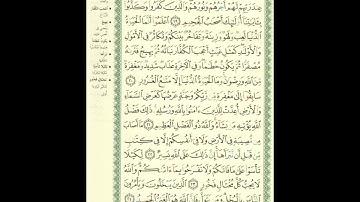 عِندَ رَبِّهِمْ لَهُمْ أَجْرُهُمْ وَنُورُهُمْ وَالَّذِينَ كَفَرُوا وَكَذَّبُوا
بِـَٔايَـٰتِنَآ أُو۟لَـٰٓئِكَ أَصْحَـٰبُ الْجَحِيمِ ١٩ اعْلَمُوٓا أَنَّمَا الْحَيَوٰةُ
الدُّنْيَا لَعِبٌ وَلَهْوٌ وَزِينَةٌ وَتَفَاخُرٌ بَيْنَكُمْ وَتَكَاثُرٌ فِي الْأَمْوَٰلِ
وَالْأَوْلَـٰدِ كَمَثَلِ غَيْثٍ أَعْجَبَ الْكُفَّارَ نَبَاتُهُ ثُمَّ يَهِيجُ فَتَرَىٰهُ
مُصْفَرًّا ثُمَّ يَكُونُ حُطَـٰمًا وَفِي الْـَٔاخِرَةِ عَذَابٌ شَدِيدٌ وَمَغْفِرَةٌ
مِّنَ اللَّهِ وَرِضْوَٰنٌ وَمَا الْحَيَوٰةُ الدُّنْيَآ إِلَّا مَتَـٰعُ الْغُرُورِ ٢٠
سَابِقُوٓا إِلَىٰ مَغْفِرَةٍ مِّن رَّبِّكُمْ وَجَنَّةٍ عَرْضُهَا كَعَرْضِ السَّمَآءِ
وَالْأَرْضِ أُعِدَّتْ لِلَّذِينَ ءَامَنُوا بِاللَّهِ وَرُسُلِهِ ذَٰلِكَ فَضْلُ
اللَّهِ يُؤْتِيهِ مَن يَشَآءُ وَاللَّهُ ذُو الْفَضْلِ الْعَظِيمِ ٢١ مَآ أَصَابَ
مِن مُّصِيبَةٍ فِي الْأَرْضِ وَلَا فِيٓ أَنفُسِكُمْ إِلَّا فِي كِتَـٰبٍ
مِّن قَبْلِ أَن نَّبْرَأَهَآ إِنَّ ذَٰلِكَ عَلَى اللَّهِ يَسِيرٌ ٢٢ لِّكَيْلَا
تَأْسَوْا عَلَىٰ مَا فَاتَكُمْ وَلَا تَفْرَحُوا بِمَآ ءَاتَىٰكُمْ وَاللَّهُ
لَا يُحِبُّ كُلَّ مُخْتَالٍ فَخُورٍ ٢٣ الَّذِينَ يَبْخَلُونَ وَيَأْمُرُونَ
النَّاسَ بِالْبُخْلِ وَمَن يَتَوَلَّ فَإِنَّ اللَّهَ هُوَ الْغَنِيُّ الْحَمِيدُ ٢٤